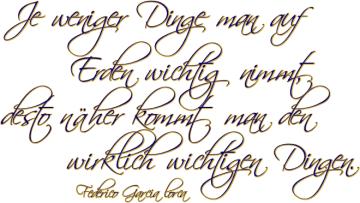 Je weniger Dinge man auf
Erden wichtig nimmt,
desto näher kommt man den
wirklich wichtigen Dingen.
Federico Garcia lorca